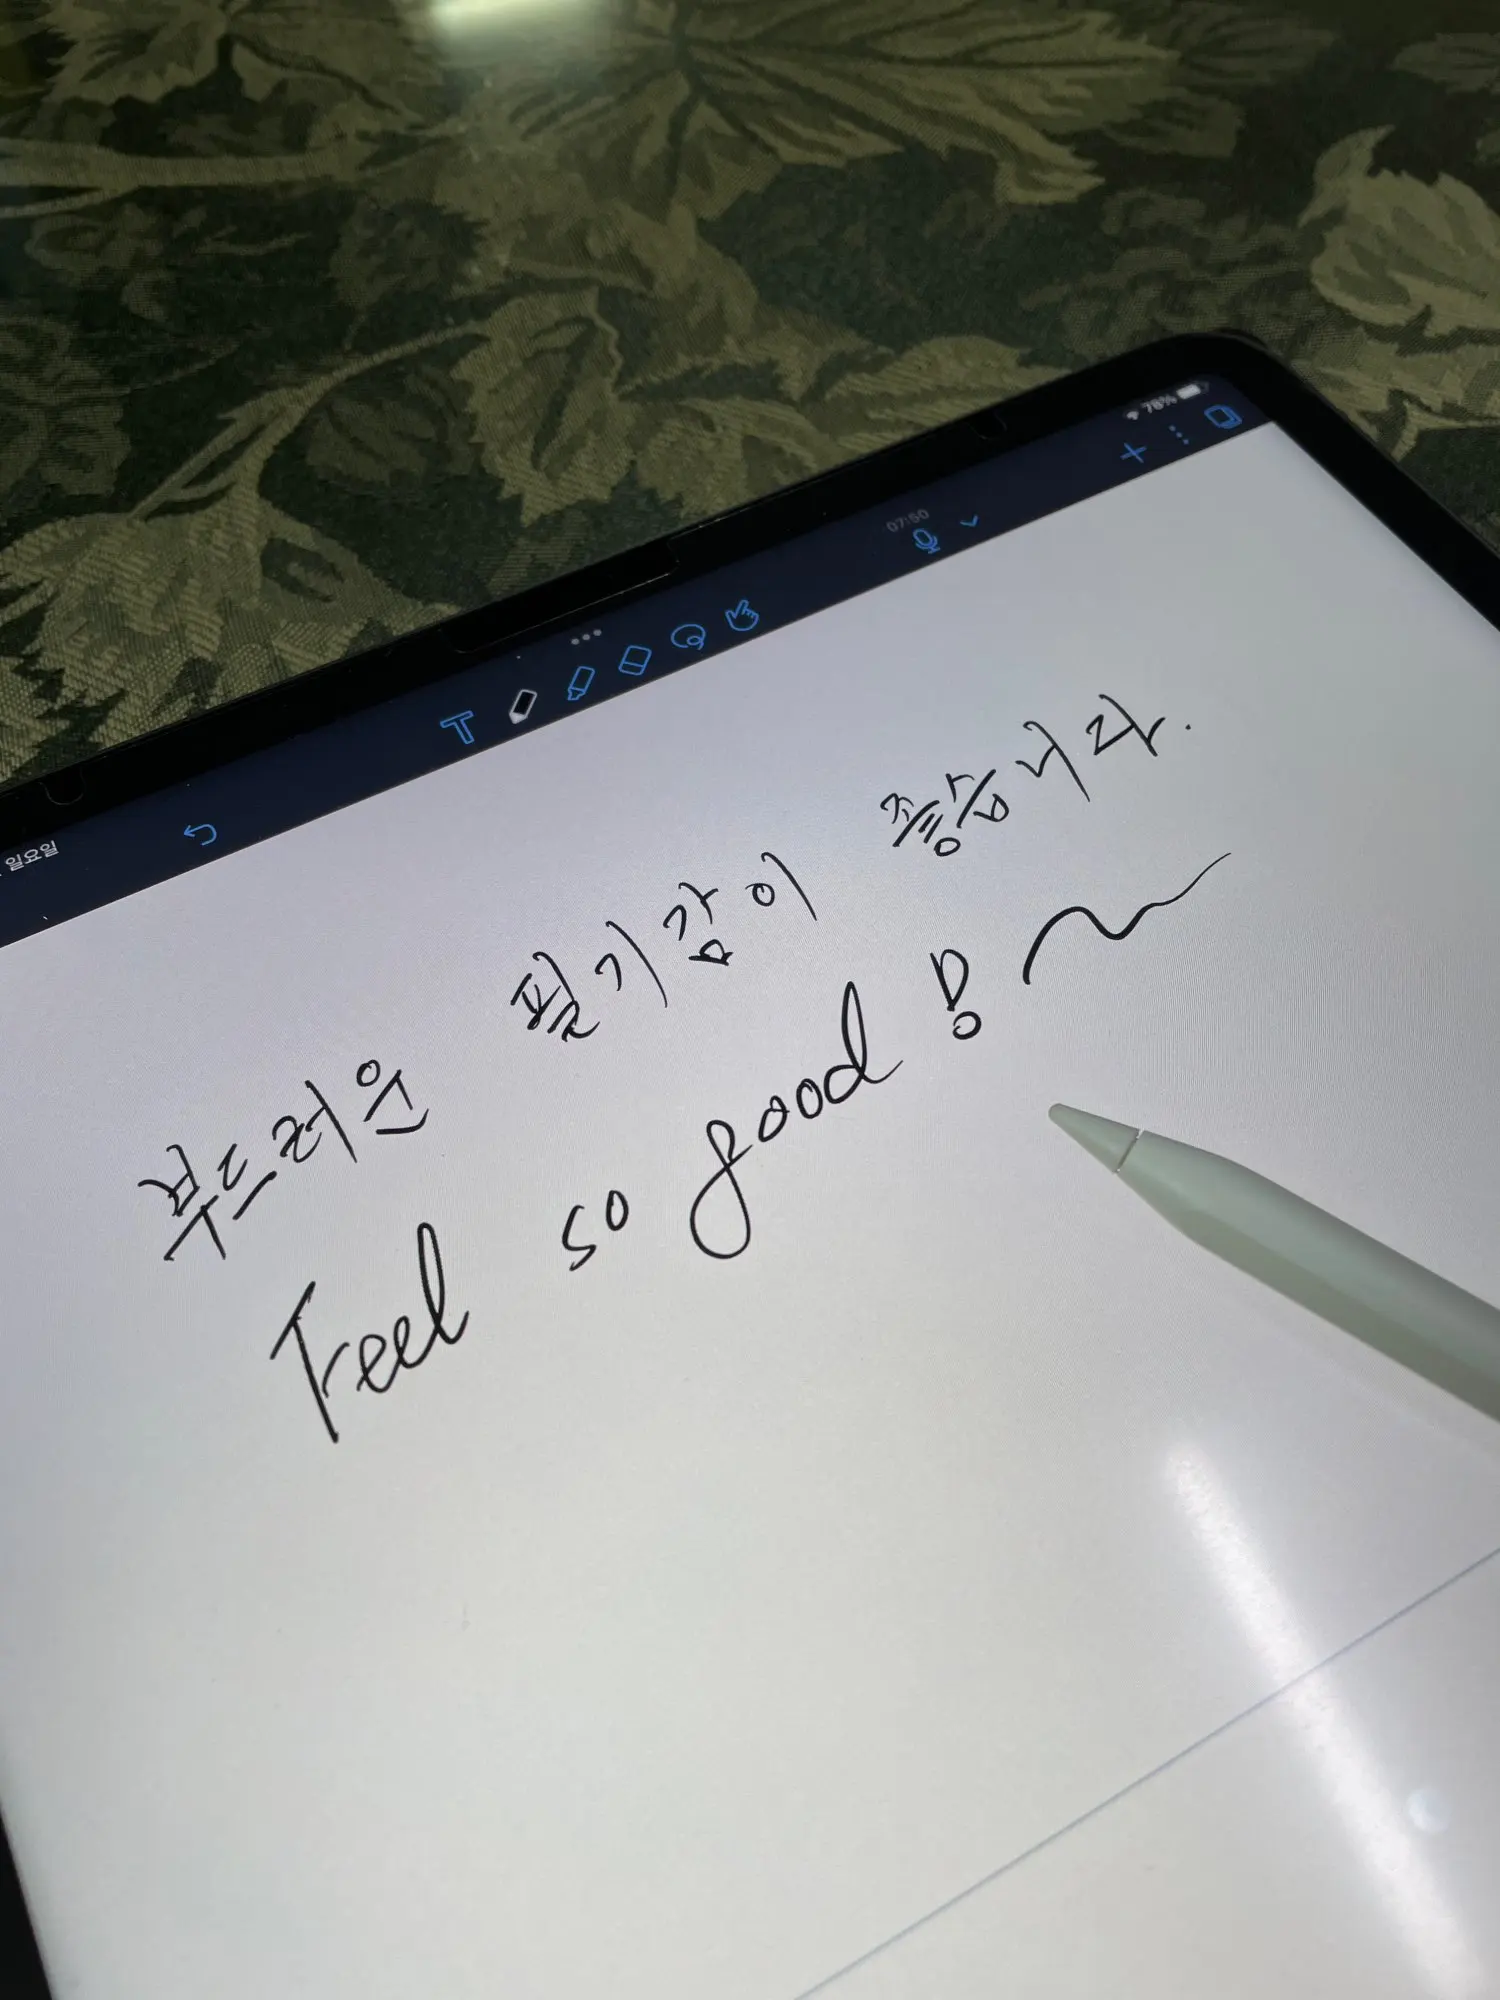 78%
07:50
일요일
부드러운 필기감이 좋습니다.
Feel so good!~